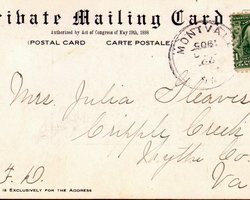 rivate Mailing Card
Authorized by Act of Congress of May 19th, 1898
(POSTAL CARD CARTE POSTALE)
MONTVAL
Mrs. Julia Cleaves
Cripple Creek
Wythe Co
Va
F. D.
IS EXCLUSIVELY FOR THE ADDRESS